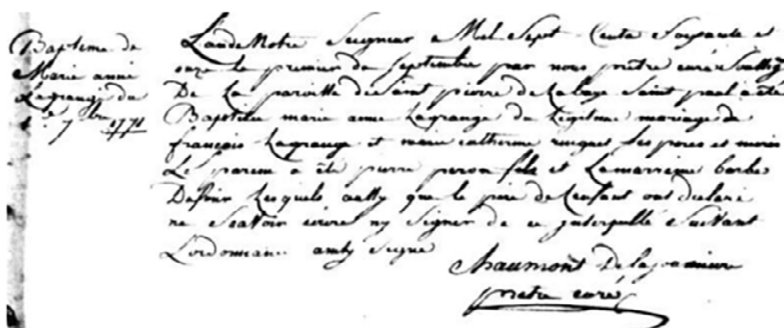 Bapteme de
Marie anne
Lagrange du
1.er 7bre 1771
L'an de Notre Seigneur Mil Sept Cents Soixante et
onze le premier de Septembre par nous prêtre curé Soussigé
De la paroisse de Saint pierre de Saint paul a été
Baptisée marie anne Lagrange du Légitime mariage de
françois Lagrange et marie catherine Ses peres et meres
Le parein a été pierre peron fils et La marreine barbe
Dessoir Lesquels aussy que le pere de L'enfant ont declaré
ne Scavoir ecrire ny Signer de ce Interpellé Suivant
L'ordonnance aussy Signé
Chaumont De la
prêtre curé